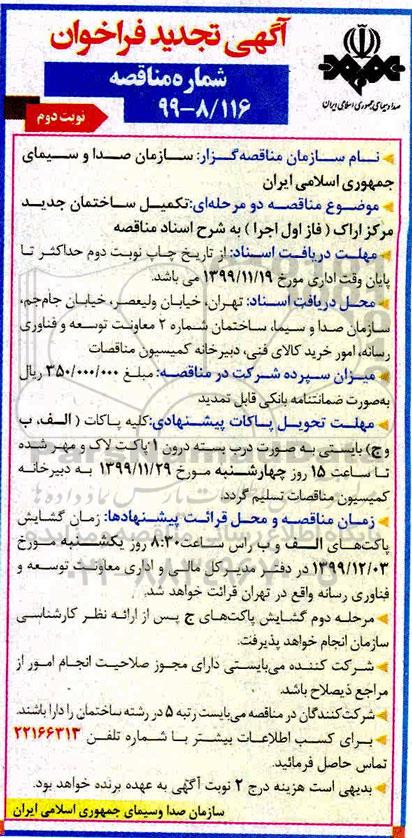 آگهی تجدید فراخوان
شماره مناقصه
۹۹-۸/۱۱۶
نوبت دوم
صدا و سیمای جمهوری اسلامی ایران
نام سازمان مناقصه‌گزار: سازمان صدا و سیمای
جمهوری اسلامی ایران
موضوع مناقصه دو مرحله‌ای: تکمیل ساختمان جدید
مرکز اراک ( فاز اول اجرا ) به شرح اسناد مناقصه
مهلت دریافت اسناد: از تاریخ چاپ نوبت دوم حداکثر تا
پایان وقت اداری مورخ ۱۳۹۹/۱۱/۱۹ می باشد.
محل دریافت اسناد: تهران، خیابان ولیعصر، خیابان جام‌جم،
سازمان صدا و سیما، ساختمان شماره ۲ معاونت توسعه و فناوری
رسانه، امور خرید کالای فنی، دبیرخانه کمیسیون مناقصات
میزان سپرده شرکت در مناقصه: مبلغ ۳۵۰/۰۰۰/۰۰۰ ریال
به‌صورت ضمانتنامه بانکی قابل تمدید
مهلت تحویل پاکات پیشنهادی: کلیه پاکات ( الف، ب
و ج) بایستی به صورت درب بسته درون ۱ پاکت لاک و مهر شده
تا ساعت ۱۵ روز چهارشنبه مورخ ۱۳۹۹/۱۱/۲۹ به دبیرخانه
کمیسیون مناقصات تسلیم گردد.
زمان مناقصه و محل قرائت پیشنهادها: زمان گشایش
پاکت‌های الف و ب راس ساعت ۸:۳۰ روز یکشنبه مورخ
۱۳۹۹/۱۲/۰۳ در دفتر مدیرکل مالی و اداری معاونت توسعه و
فناوری رسانه واقع در تهران قرائت خواهد شد.
مرحله دوم گشایش پاکت‌های ج پس از ارائه نظر کارشناسی
سازمان انجام خواهد پذیرفت.
شرکت کننده می‌بایستی دارای مجوز صلاحیت انجام امور از
مراجع ذیصلاح باشد.
شرکت‌کنندگان در مناقصه می‌بایست رتبه ۵ در رشته ساختمان را دارا باشند.
برای کسب اطلاعات بیشتر با شماره تلفن ۲۲۱۶۶۳۱۳
تماس حاصل فرمائید.
بدیهی است هزینه درج ۲ نوبت آگهی به عهده برنده خواهد بود.
سازمان صدا وسیمای جمهوری اسلامی ایران